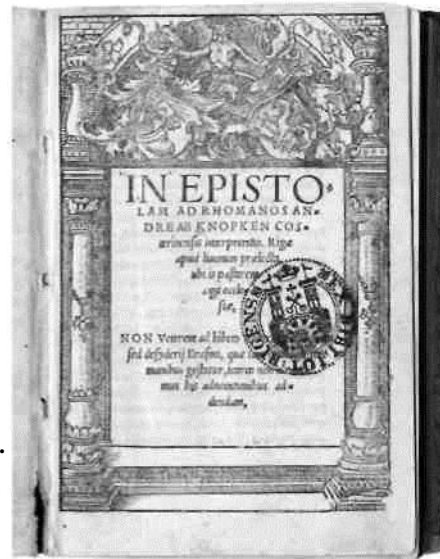 IN EPISTO-
LAM AD RHOMANOS AN-
DREAE KNOPKEN COS-
terinensis interpretatio. Rigæ
apud liuones prælecta,
ubi is pastorem
agit eccle-
siæ,
NON Veterem ad
sed desyderij Erasmi, quæ
manibus gestatur,
mus his adnotationibus ad-
dendam,